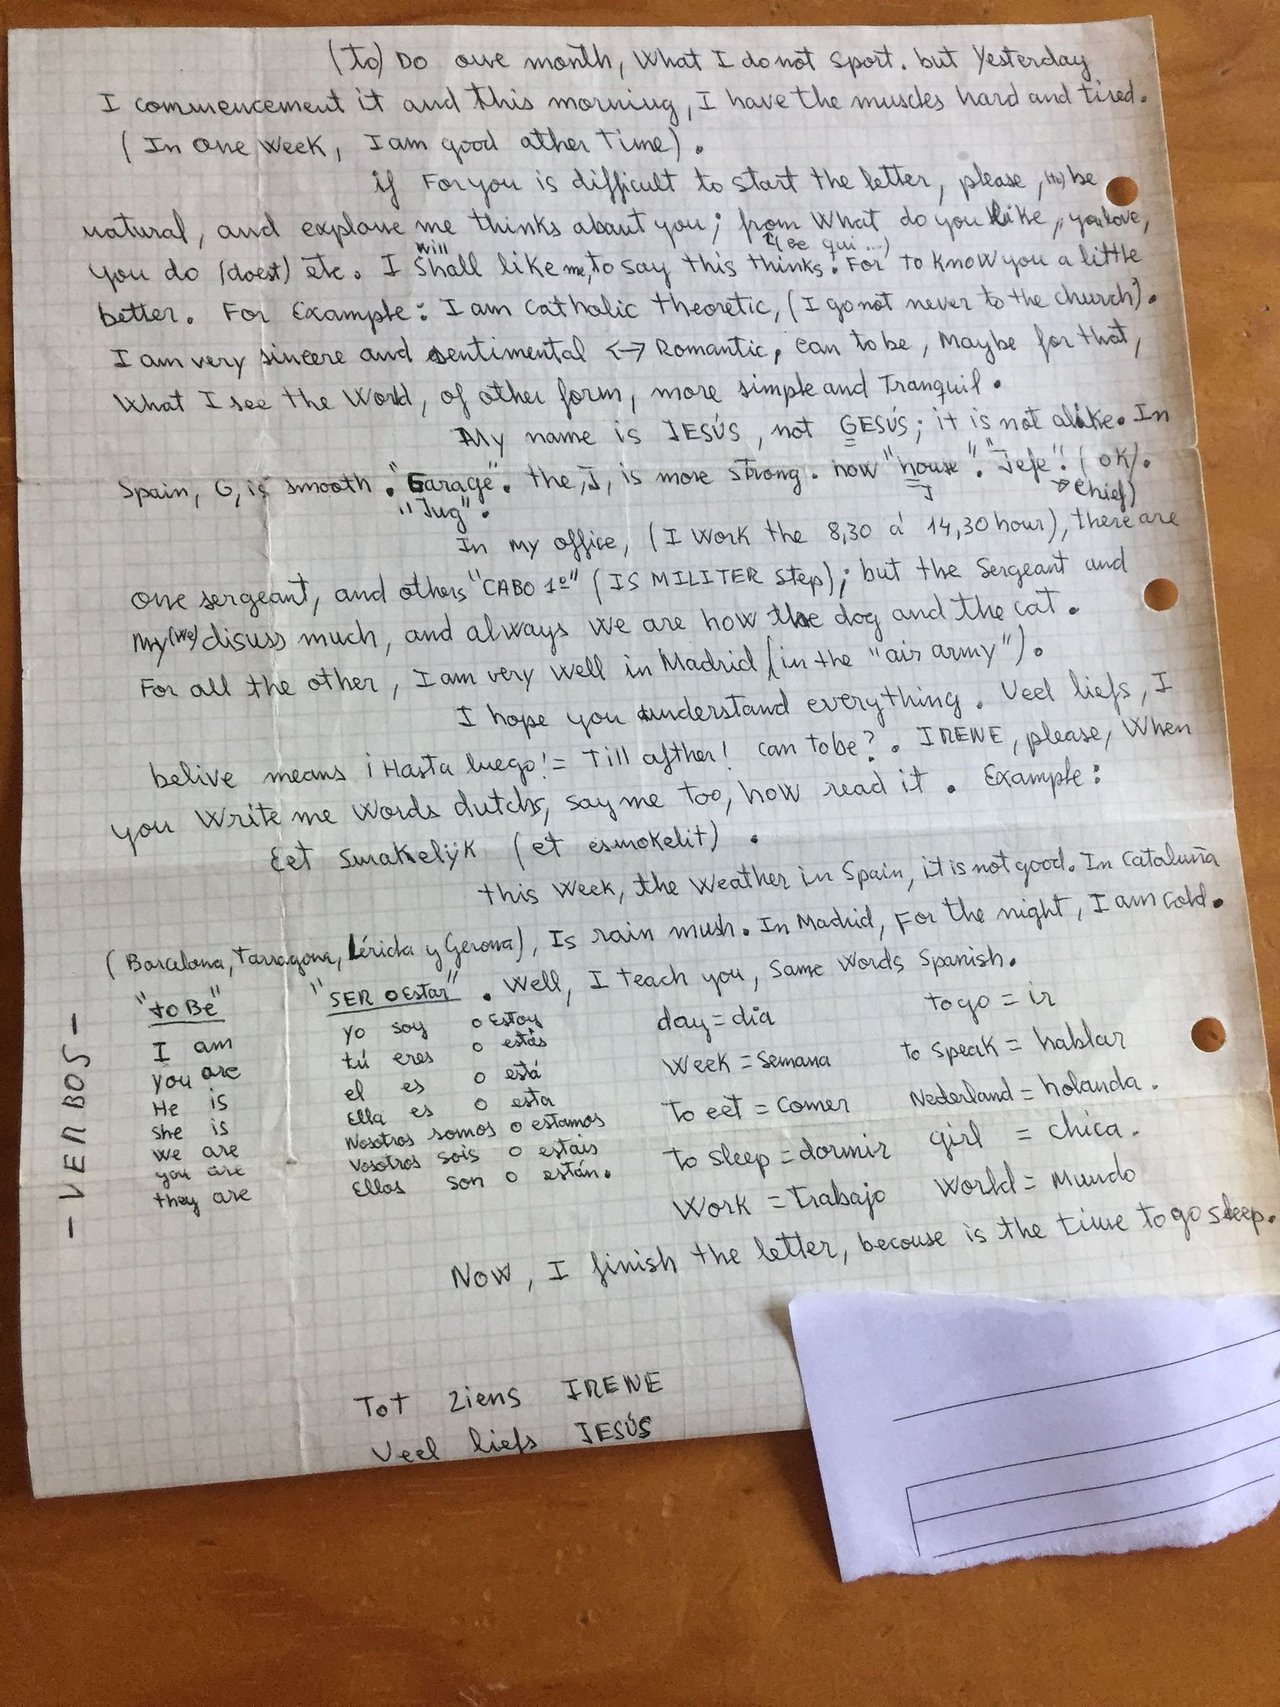 (to) Do one month, What I do not sport. but Yesterday
I commencement it and this morning, I have the muscles hard and tired.
(In one week, I am good ather time).
if For you is difficult to start the letter, please, (to) be
natural, and explane me thinks about you; from What do you like, you love,
(se qui...)
will
you do (doest) etc. I Shall like me, to say this thinks. For to know you a little
better. For Example: I am Catholic theoretic, (I go not never to the church).
I am very sincere and sentimental <-> Romantic, can to be, Maybe for that,
What I see the World, of other form, more simple and Tranquil.
My name is JESÚS, not GESÚS; it is not alike. In
Spain, G, is smooth. "Garage". the, J, is more strong. how "house". "Jefe". (OK).
J
→ Chief)
"Jug".
In my office, (I Work the 8,30 á 14,30 hour), there are
one sergeant, and others "CABO 1º" (IS MILITER Step); but the Sergeant and
my (we) disuss much, and always we are how the dog and the cat.
For all the other, I am very well in Madrid (in the "air army").
I hope you understand everything. Veel liefs, I
belive means ¡Hasta luego! = Till afther! can to be?. IRENE, please, When
you Write me Words dutchs, say me too, how read it. Example:
Eet Smakelijk (et esmokelit).
this Week, the Weather in Spain, it is not good. In Cataluña
(Barcelona, Tarragona, Lérida y Gerona), Is rain mush. In Madrid, For the night, I am cold.
"to Be" "SER o Estar". Well, I teach you, Same Words Spanish.
- VERBOS -
I am yo soy o Estoy
you are tú eres o estás
He is el es o está
she is Ella es o esta
we are Nosotros somos o estamos
you are Vosotros sois o estais
they are Ellos son o están.
day = dia to go = ir
Week = Semana to speak = hablar
To eet = Comer Nederland = holanda.
to sleep = dormir girl = chica.
Work = Trabajo World = Mundo
Now, I finish the letter, becouse is the time to go sleep.
Tot Ziens IRENE
Veel liefs JESÚS